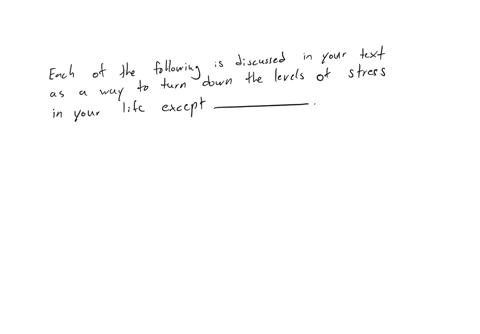 Each of the following is discussed in your text
as a way to turn down the levels of stress
in your life except __________.